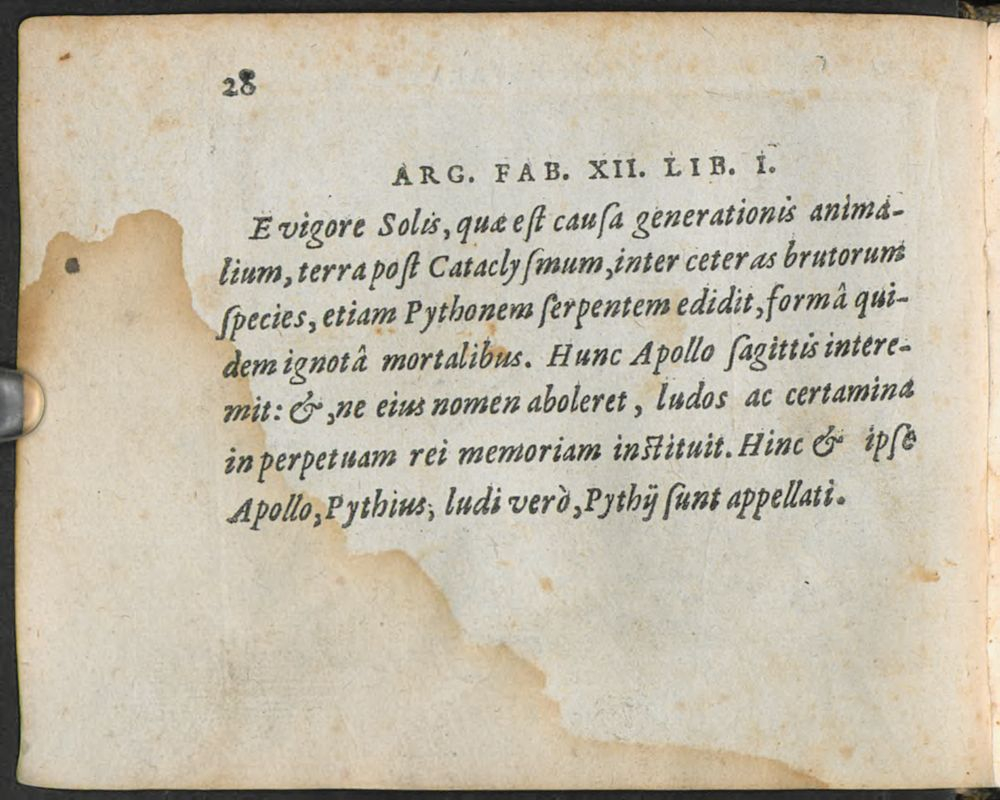 28
ARG. FAB. XII. LIB. I.
E vigore Solis, quæ est causa generationis anima-
lium, terra post Cataclysmum, inter ceteras brutorum
species, etiam Pythonem serpentem edidit, formâ qui-
dem ignotâ mortalibus. Hunc Apollo sagittis intere-
mit: &, ne eius nomen aboleret, ludos ac certamina
in perpetuam rei memoriam instituit. Hinc & ipse
Apollo, Pythius; ludi verò, Pythij sunt appellati.